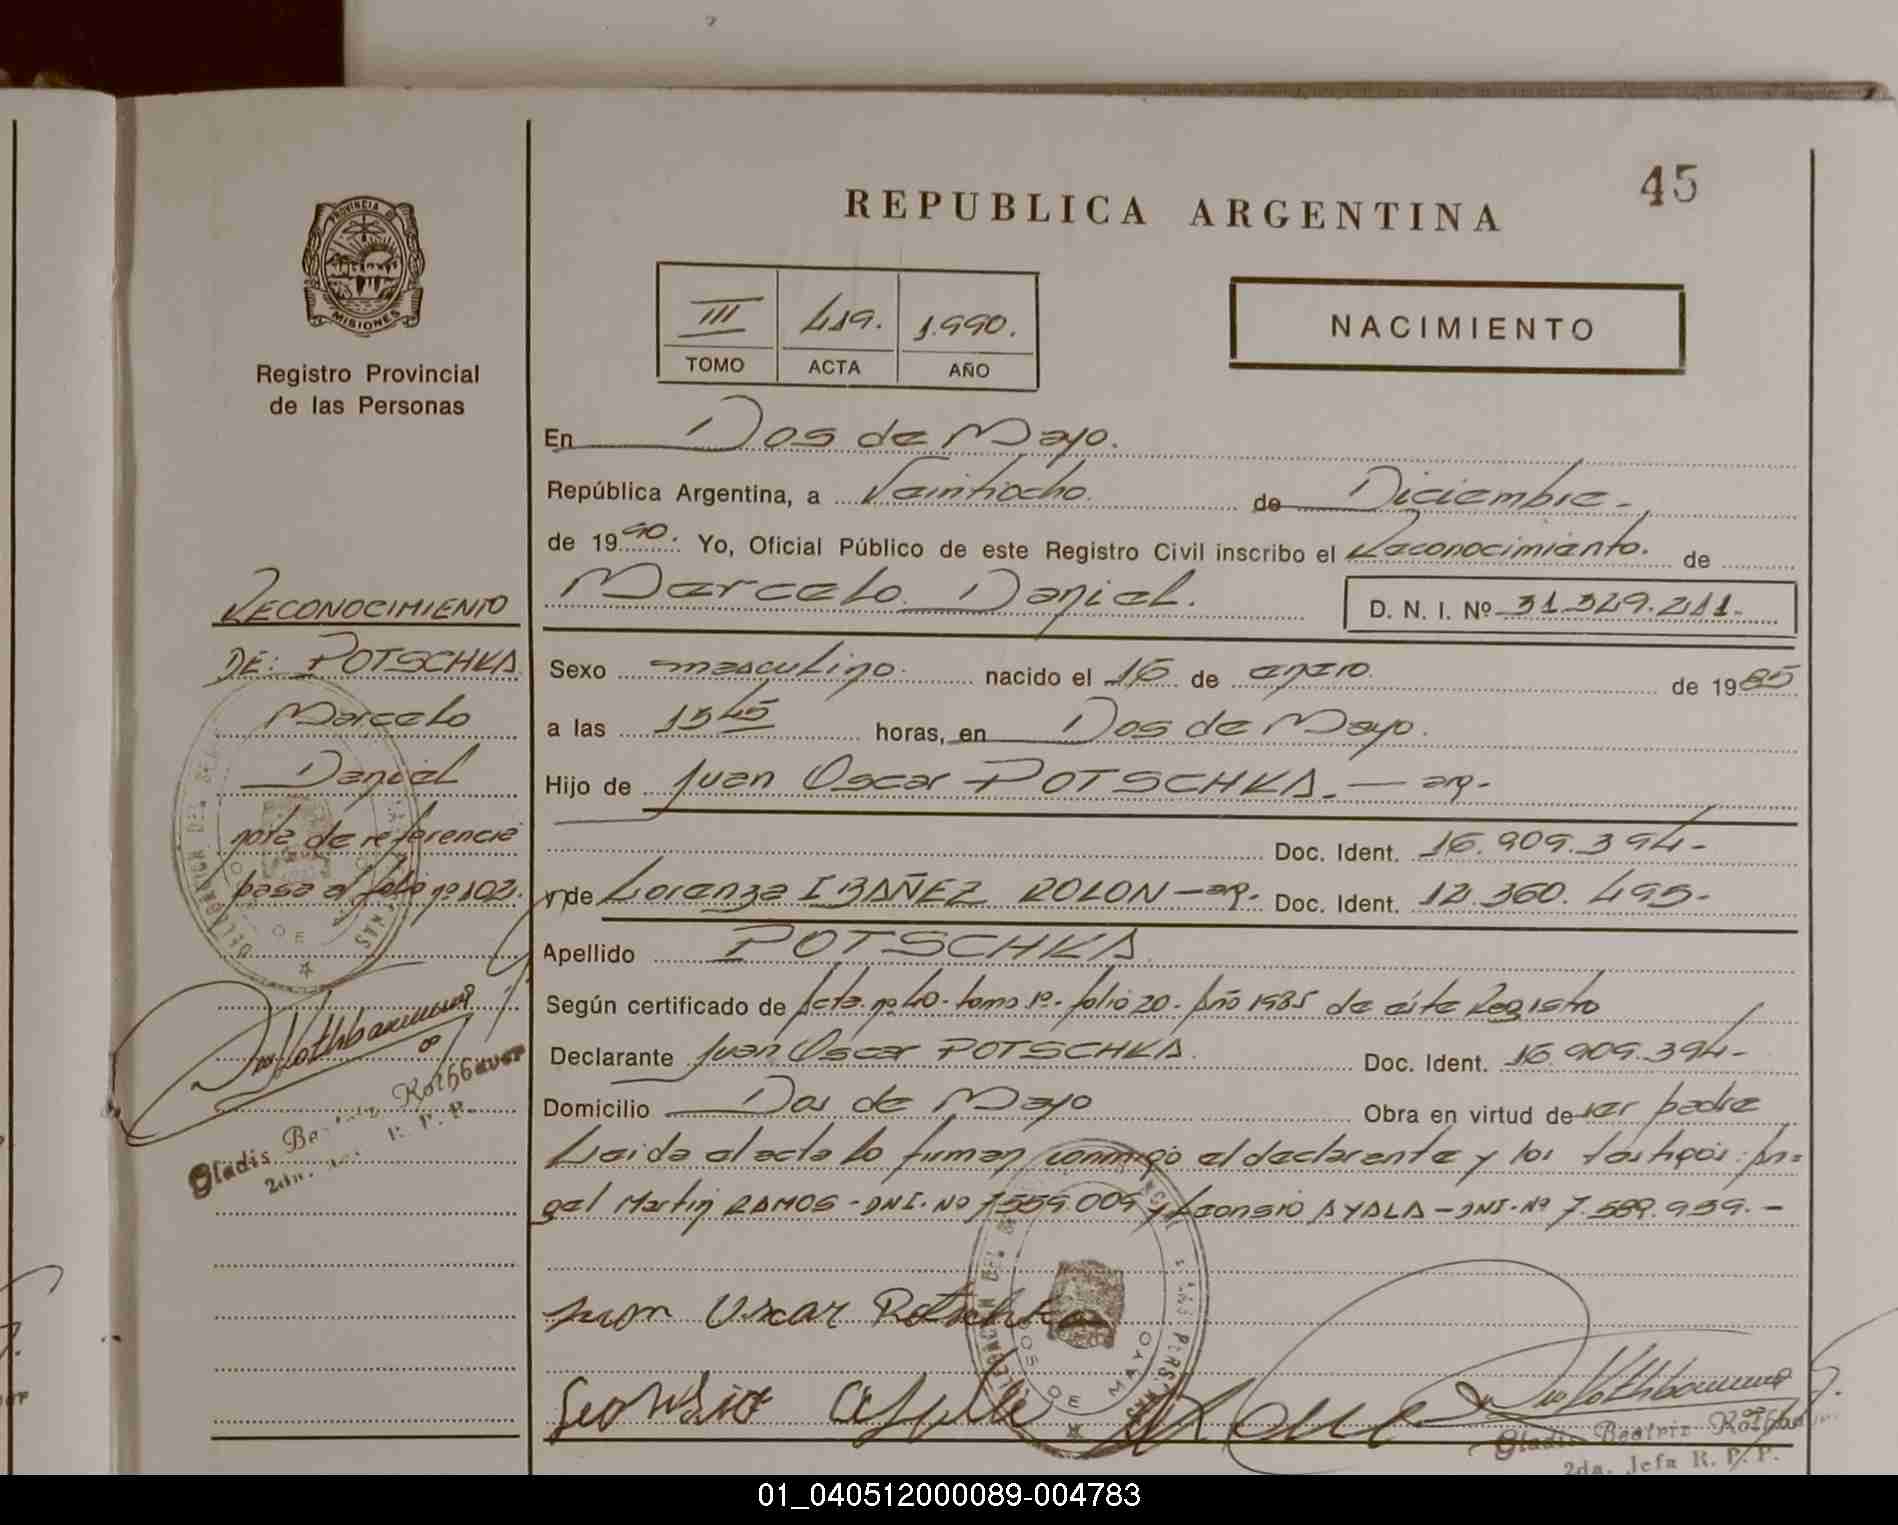 45
REPUBLICA ARGENTINA
PROVINCIA DE
MISIONES
Registro Provincial
de las Personas
III 419. 1.990.
TOMO ACTA AÑO
NACIMIENTO
En Dos de Mayo.
República Argentina, a Veintiocho. de Diciembre.-
de 1990. Yo, Oficial Público de este Registro Civil inscribo el Reconocimiento. de
Marcelo Daniel. D. N. I. Nº 31.329.211.
Sexo masculino. nacido el 16 de enero. de 1985
a las 1545 horas, en Dos de Mayo.
Hijo de Juan Oscar POTSCHKA.- arg.-
Doc. Ident. 16.909.394-
y de Lorenza IBAÑEZ ROLON - arg.- Doc. Ident. 12.360.495-
Apellido POTSCHKA
Según certificado de Acta nº 40- tomo 1º- folio 20- Año 1985 de éste Registro
Declarante Juan Oscar POTSCHKA. Doc. Ident. 16.909.394-
Domicilio Dos de Mayo Obra en virtud de ser padre
Leida el acta lo firman conmigo el declarante y los testigos: An=
gel Martin RAMOS - DNI. Nº 7.559.009 y Leonsio AYALA - DNI. Nº 7.589.959.-
Juan Oscar Potschka
Leonsio
Gladis Beatriz Rothbauer
2da. Jefa R. P. P.
RECONOCIMIENTO
DE: POTSCHKA
Marcelo
Daniel
nota de referencia
pasa al folio nº 102.
Gladis Beatriz Rothbauer
2da. Jefa R. P. P.
DOS DE MAYO
01_040512000089-004783